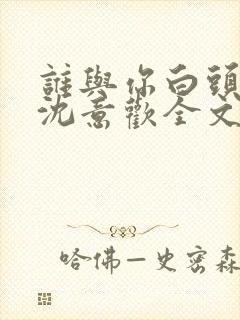 誰與你白頭
沈意歡全文
哈佛—史密森